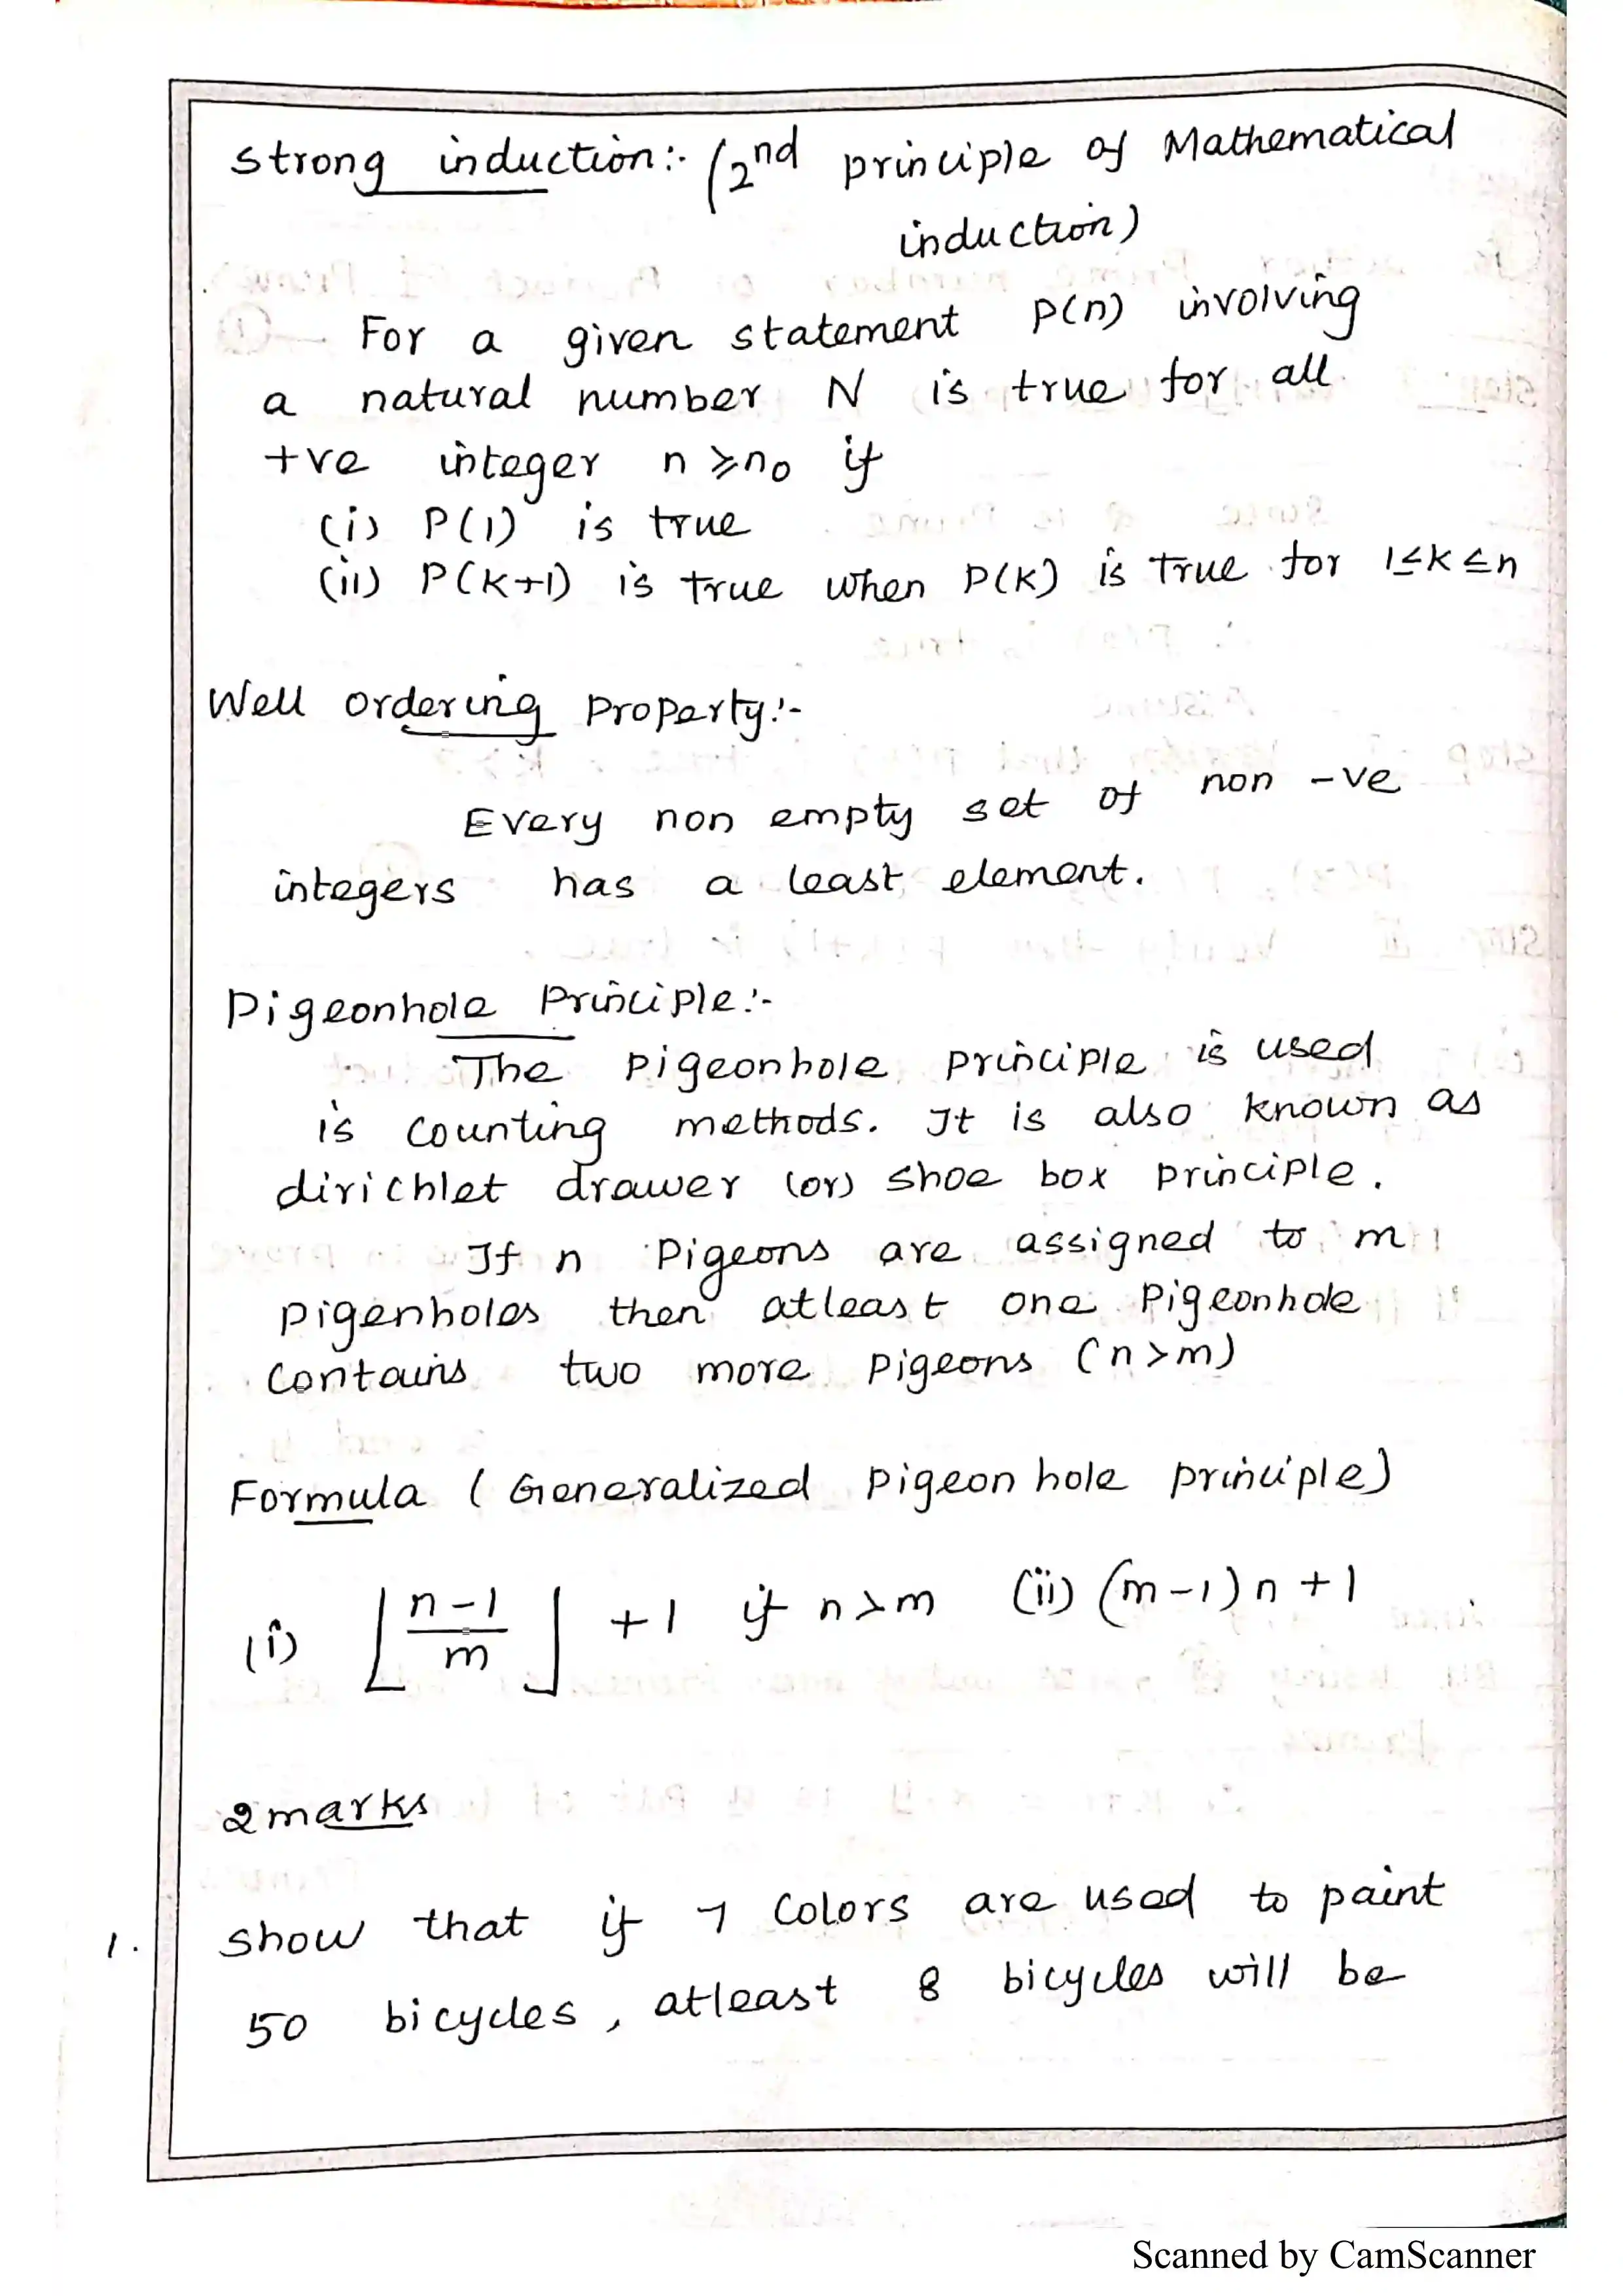 Strong induction:- (2nd principle of Mathematical
induction)
For a given statement P(n) involving
a natural number N is true for all
+ve integer n ≥ n0 if
(i) P(1) is true
(ii) P(K+1) is true when P(K) is true for 1≤K≤n
Well ordering property:-
Every non empty set of non -ve
integers has a least element.
Pigeonhole Principle:-
The pigeonhole principle is used
is counting methods. It is also known as
dirichlet drawer (or) shoe box principle.
If n pigeons are assigned to m
pigenholes then atleast one pigeonhole
contains two more pigeons (n>m)
Formula (Generalized pigeon hole principle)
(i) ⌊(n-1)/m⌋ +1 if n>m (ii) (m-1)n+1
2 marks
1. Show that if 7 colors are used to paint
50 bicycles, atleast 8 bicycles will be
Scanned by CamScanner